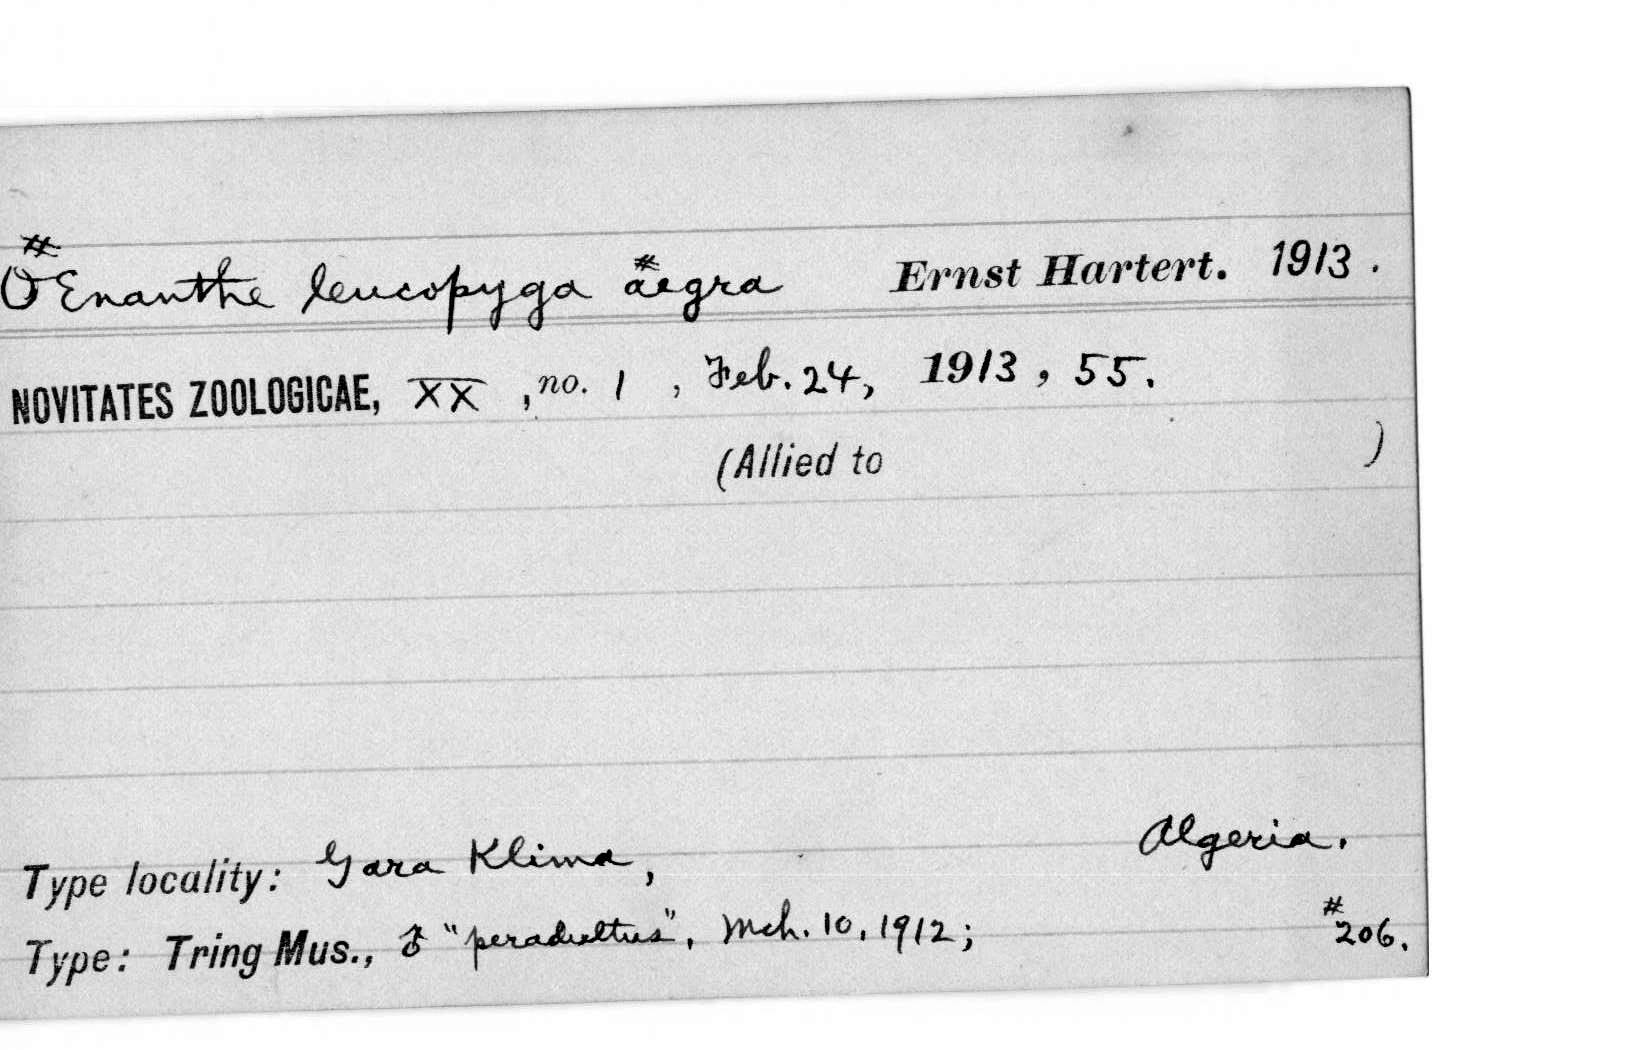 #
OEnanthe leucopyga aegra Ernst Hartert. 1913.
#
NOVITATES ZOOLOGICAE, XX, no. 1, Feb. 24, 1913, 55.
(Allied to )
Type locality: Gara Klima, Algeria.
Type: Tring Mus., ♂ "peradultus", Mch. 10, 1912; #206.